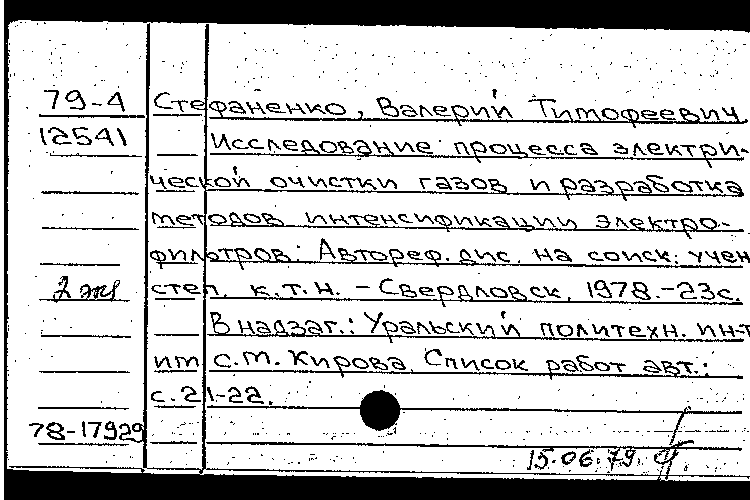 79-4 Стефаненко, Валерий Тимофеевич
12541 Исследование процесса электри-
ческой очистки газов и разработка
методов интенсификации электро-
фильтров: Автореф. дис. на соиск. учен
степ. к.т.н. - Свердловск, 1978.-23с.
2 экз
В надзаг.: Уральский политехн. ин-т
им С.М. Кирова. Список работ авт.:
с.21-22.
78-17929
15.06.79.